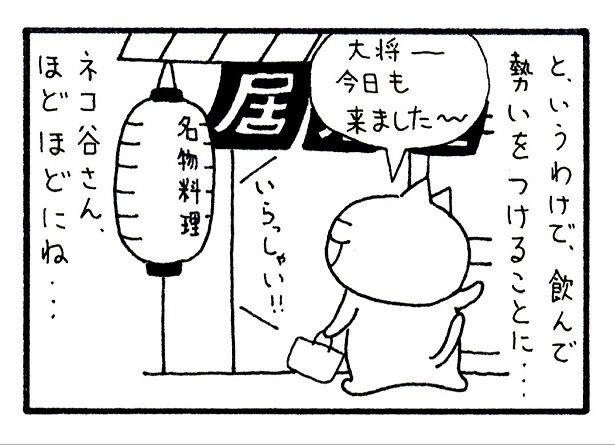 と、いうわけで、飲んで
勢いをつけることに...
大将ー
今日も
来ました〜〜
居
いらっしゃい!!
名物料理
ネコ谷さん、
ほどほどにね...